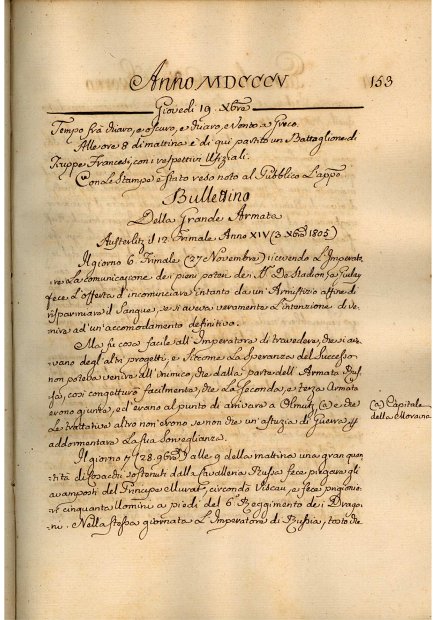 Anno MDCCCV
153
Giovedì 19 Xbre
Tempo frà chiaro, e oscuro, e chiaro, e Vento a Greco.
Alle ore 8 di mattina è di quì partito un Battaglione di
Truppe Francesi, con i respettivi Uffiziali.
Con le Stampe è stato reso noto al Pubblico l'appo
Bullettino
Della Grande Armata
Austerlitz il 12 Frimale Anno XIV (3 Xbre 1805)
Il giorno 6 Frimale (27 Novembre) ricevendo L'Imperato-
re La comunicazione dei pieni poteri de' SS. De Stadion, e Giulay
fece L'offerta d'incominciare intanto da un'Armistizio affine di
risparmiare il Sangue, se si aveva veramente L'intenzione di ve-
nire ad un'accomodamento definitivo.
Ma fù cosa facile all'Imperatore di travedere, che si a-
vevano degl'altri progetti, e siccome La Speranza del Successo
non poteva venire all'inimico, che dalla parte dell'Armata Rus-
sa, così congetturò facilmente, che La Seconda, e terza Armata
erano giunte, ed erano al punto di arrivare a Olmutz (a) e che
Le trattative altro non erano se non che un'astuzia di Guerra per
addormentare La sua sorveglianza.
(a) Capitale
della Moravia
Il giorno 7 (28. 9bre) alle 9 della mattina una gran quan-
tità di Cosacchi sostenuti dalla Cavalleria Russa fece piegare gli
avamposti del Principe Murat, circondò Viscau, e fece prigionie-
ri cinquanta Uomini a piedi del 6º Reggimento dei Drago-
ni. Nella stessa giornata L'Imperatore di Russia, tosto che